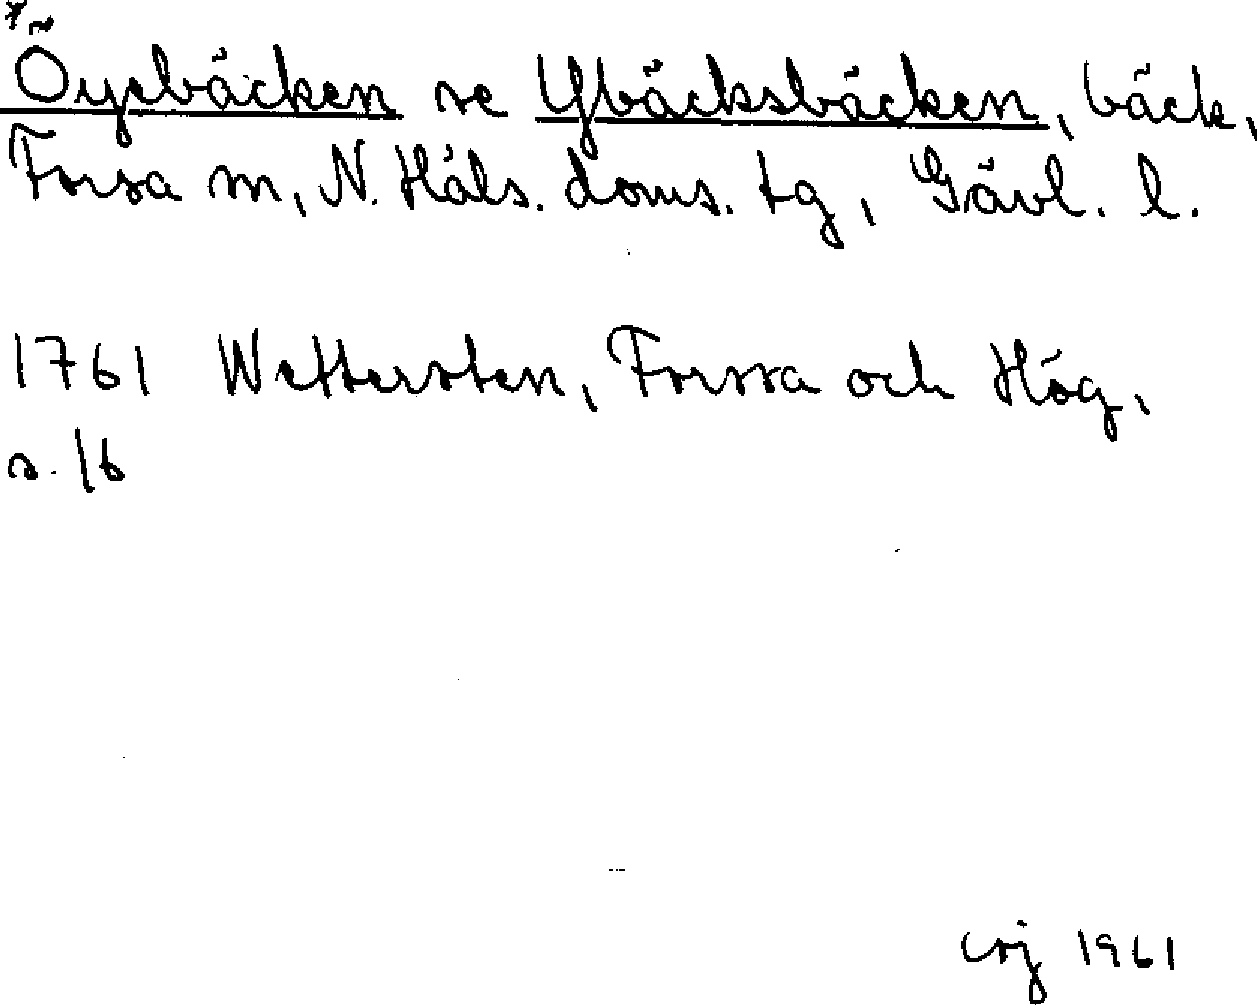 *Öyebäcken se Ybäcksbäcken, bäck,
Forsa sn, N. Häls. doms. tg, Gävl. l.
1761 Wettersten, Forssa och Hög,
s. 16
1961